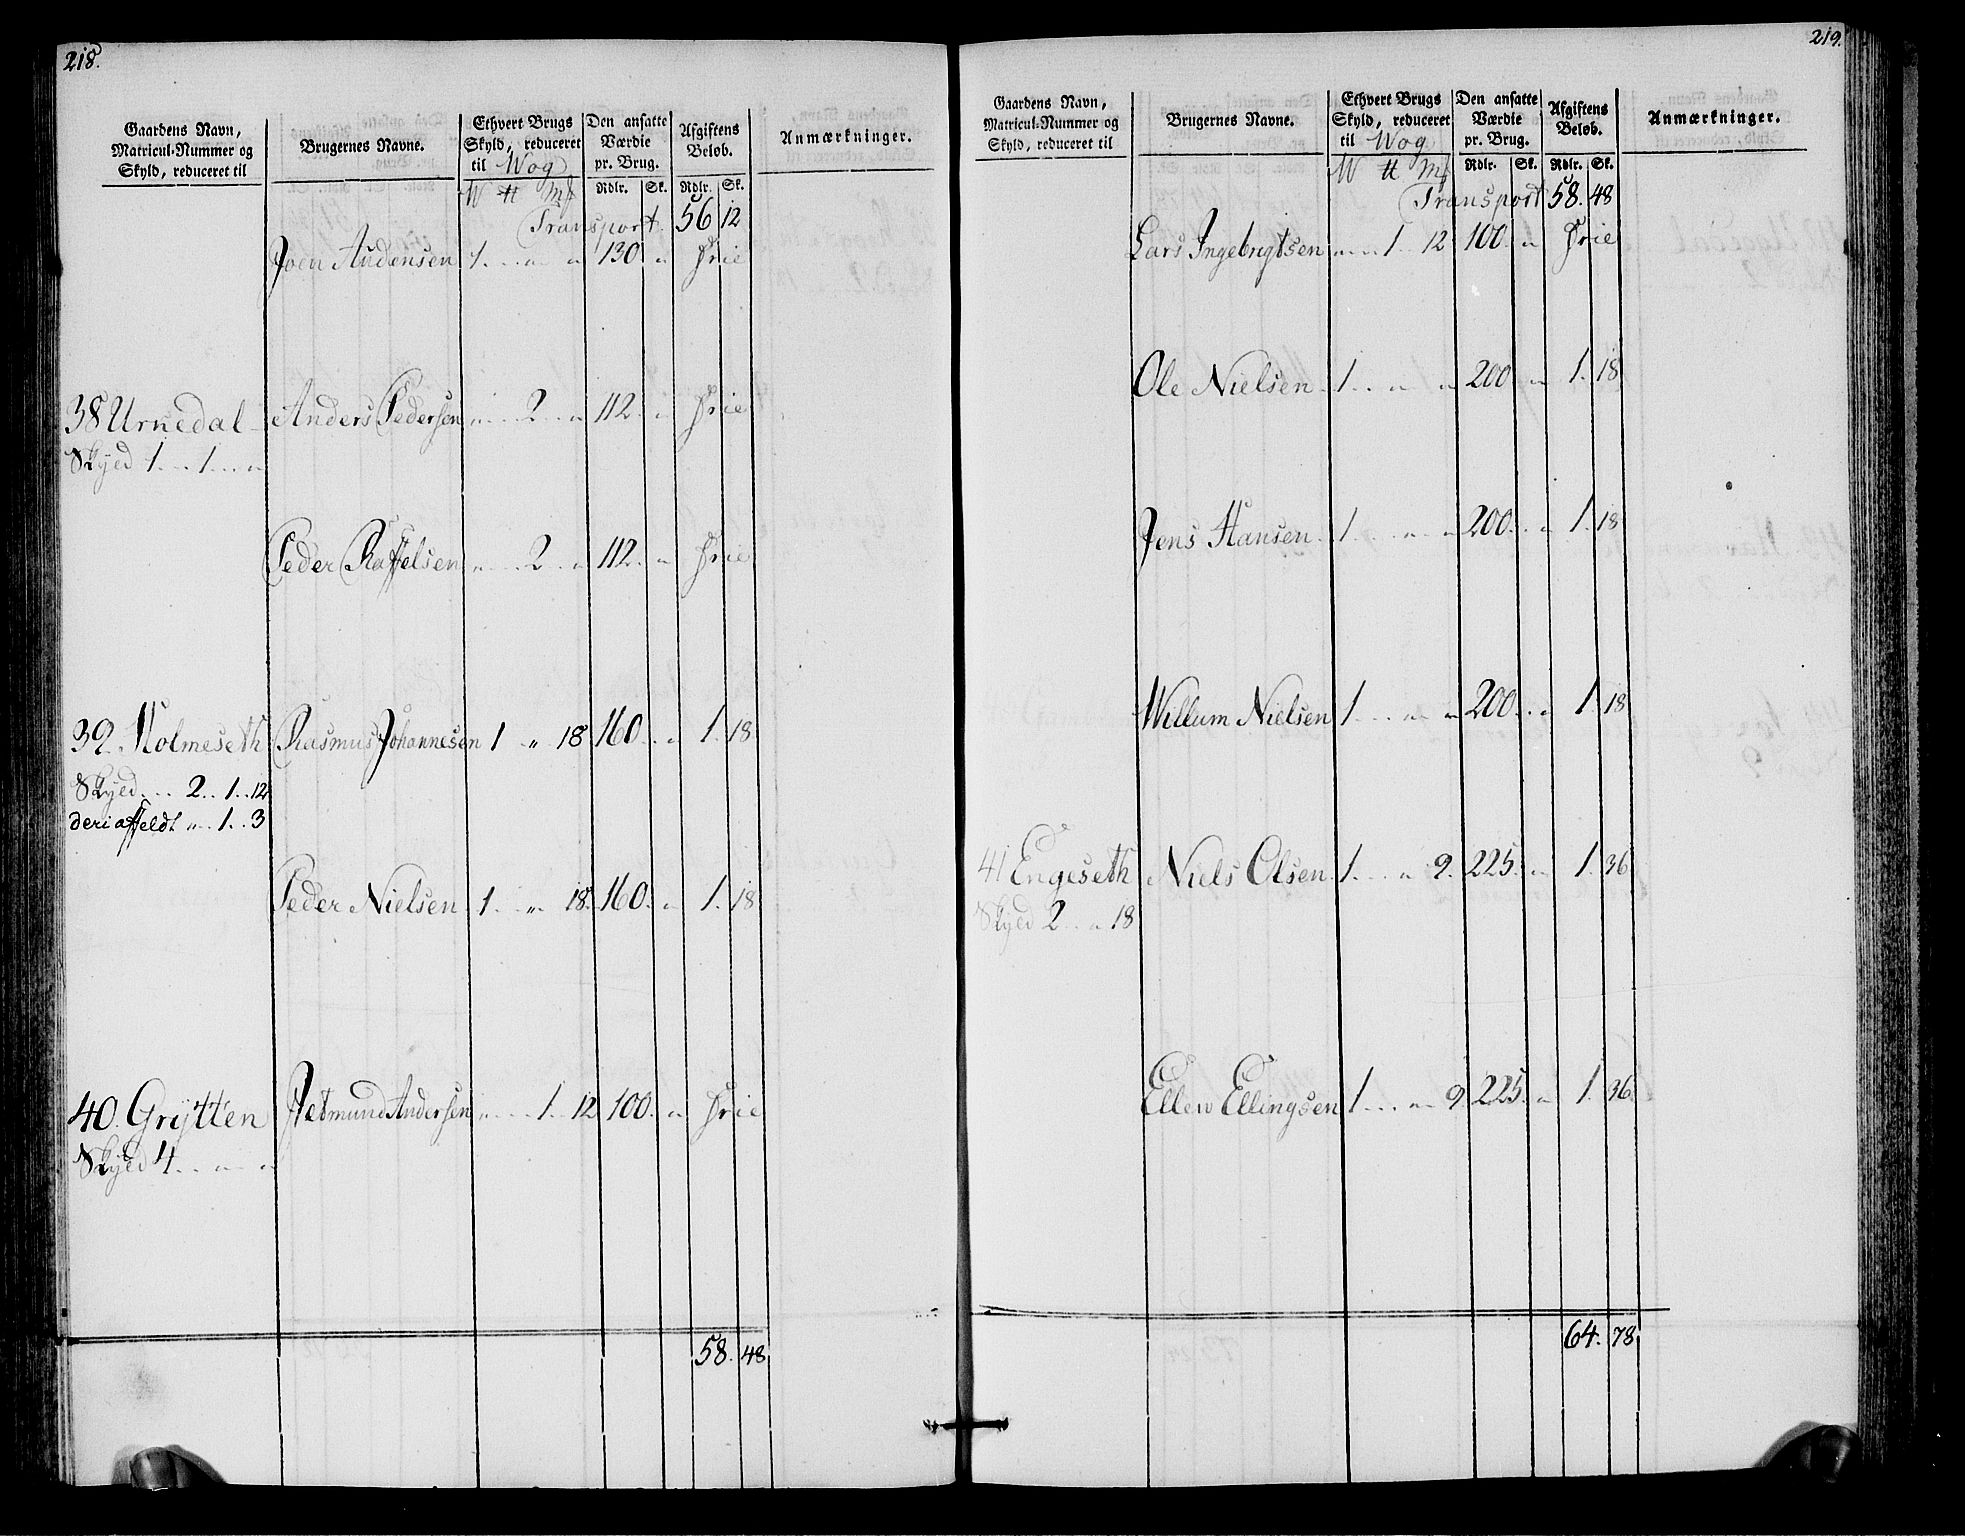 218.
Gaardens Navn, Matricul-Nummer og Skyld, reduceret til
Brugernes Navne.
Ethvert Brugs Skyld, reduceret til Wog
Den ansatte Værdie pr. Brug.
Afgiftens Beløb.
Anmærkninger.
W ℔ Mk
Rdlr. Sk. Rdlr. Sk.
Transport. 56 12
Joen Andensen 1. . . „ „ 130 „ Frie
38 Urnedal Anders Pedersen „ . . 2 . . „ 112. „ Frie
Skyld 1 . . 1 . . „
Peder Raffelsen „ . . 2 . . „ 112. „ Frie
39. Holmeseth Rasmus Johannesen 1 „ 18 160. . „ 1. 18
Skyld . . . 2 . . 1 . . 12
deri affeldt „ . . 1 . . 3
Peder Nielsen 1. „ 18. 160. „ 1. 18
40. Grytten Andersen „ . . . 1. 12 100. „ Frie
Skyld 4 . . „ „
58. 48
219.
Gaardens Navn, Matricul-Nummer og Skyld, reduceret til
Brugernes Navne.
Ethvert Brugs Skyld, reduceret til Wog
Den ansatte Værdie pr. Brug.
Afgiftens Beløb.
Anmærkninger.
W ℔ Mk
Rdlr. Sk. Rdlr. Sk.
Transport 58. 48
Lars Ingebrigtsen „ . . 1 . 12 100. „ Frie
Ole Nielsen 1. . . „ „ 200 „ 1. 18
Jens Hansen 1. . . „ „ 200. . „ 1. 18
Willum Nielsen 1. . . „ „ 200. . „ 1. 18
41 Engeseth Niels Olsen 1. . . „ 9. 225. „ 1. 36
Skyld 2 . . „ 18
Ellew Ellingsen 1. . . „ 9 225. „ 1. 36.
64. 78